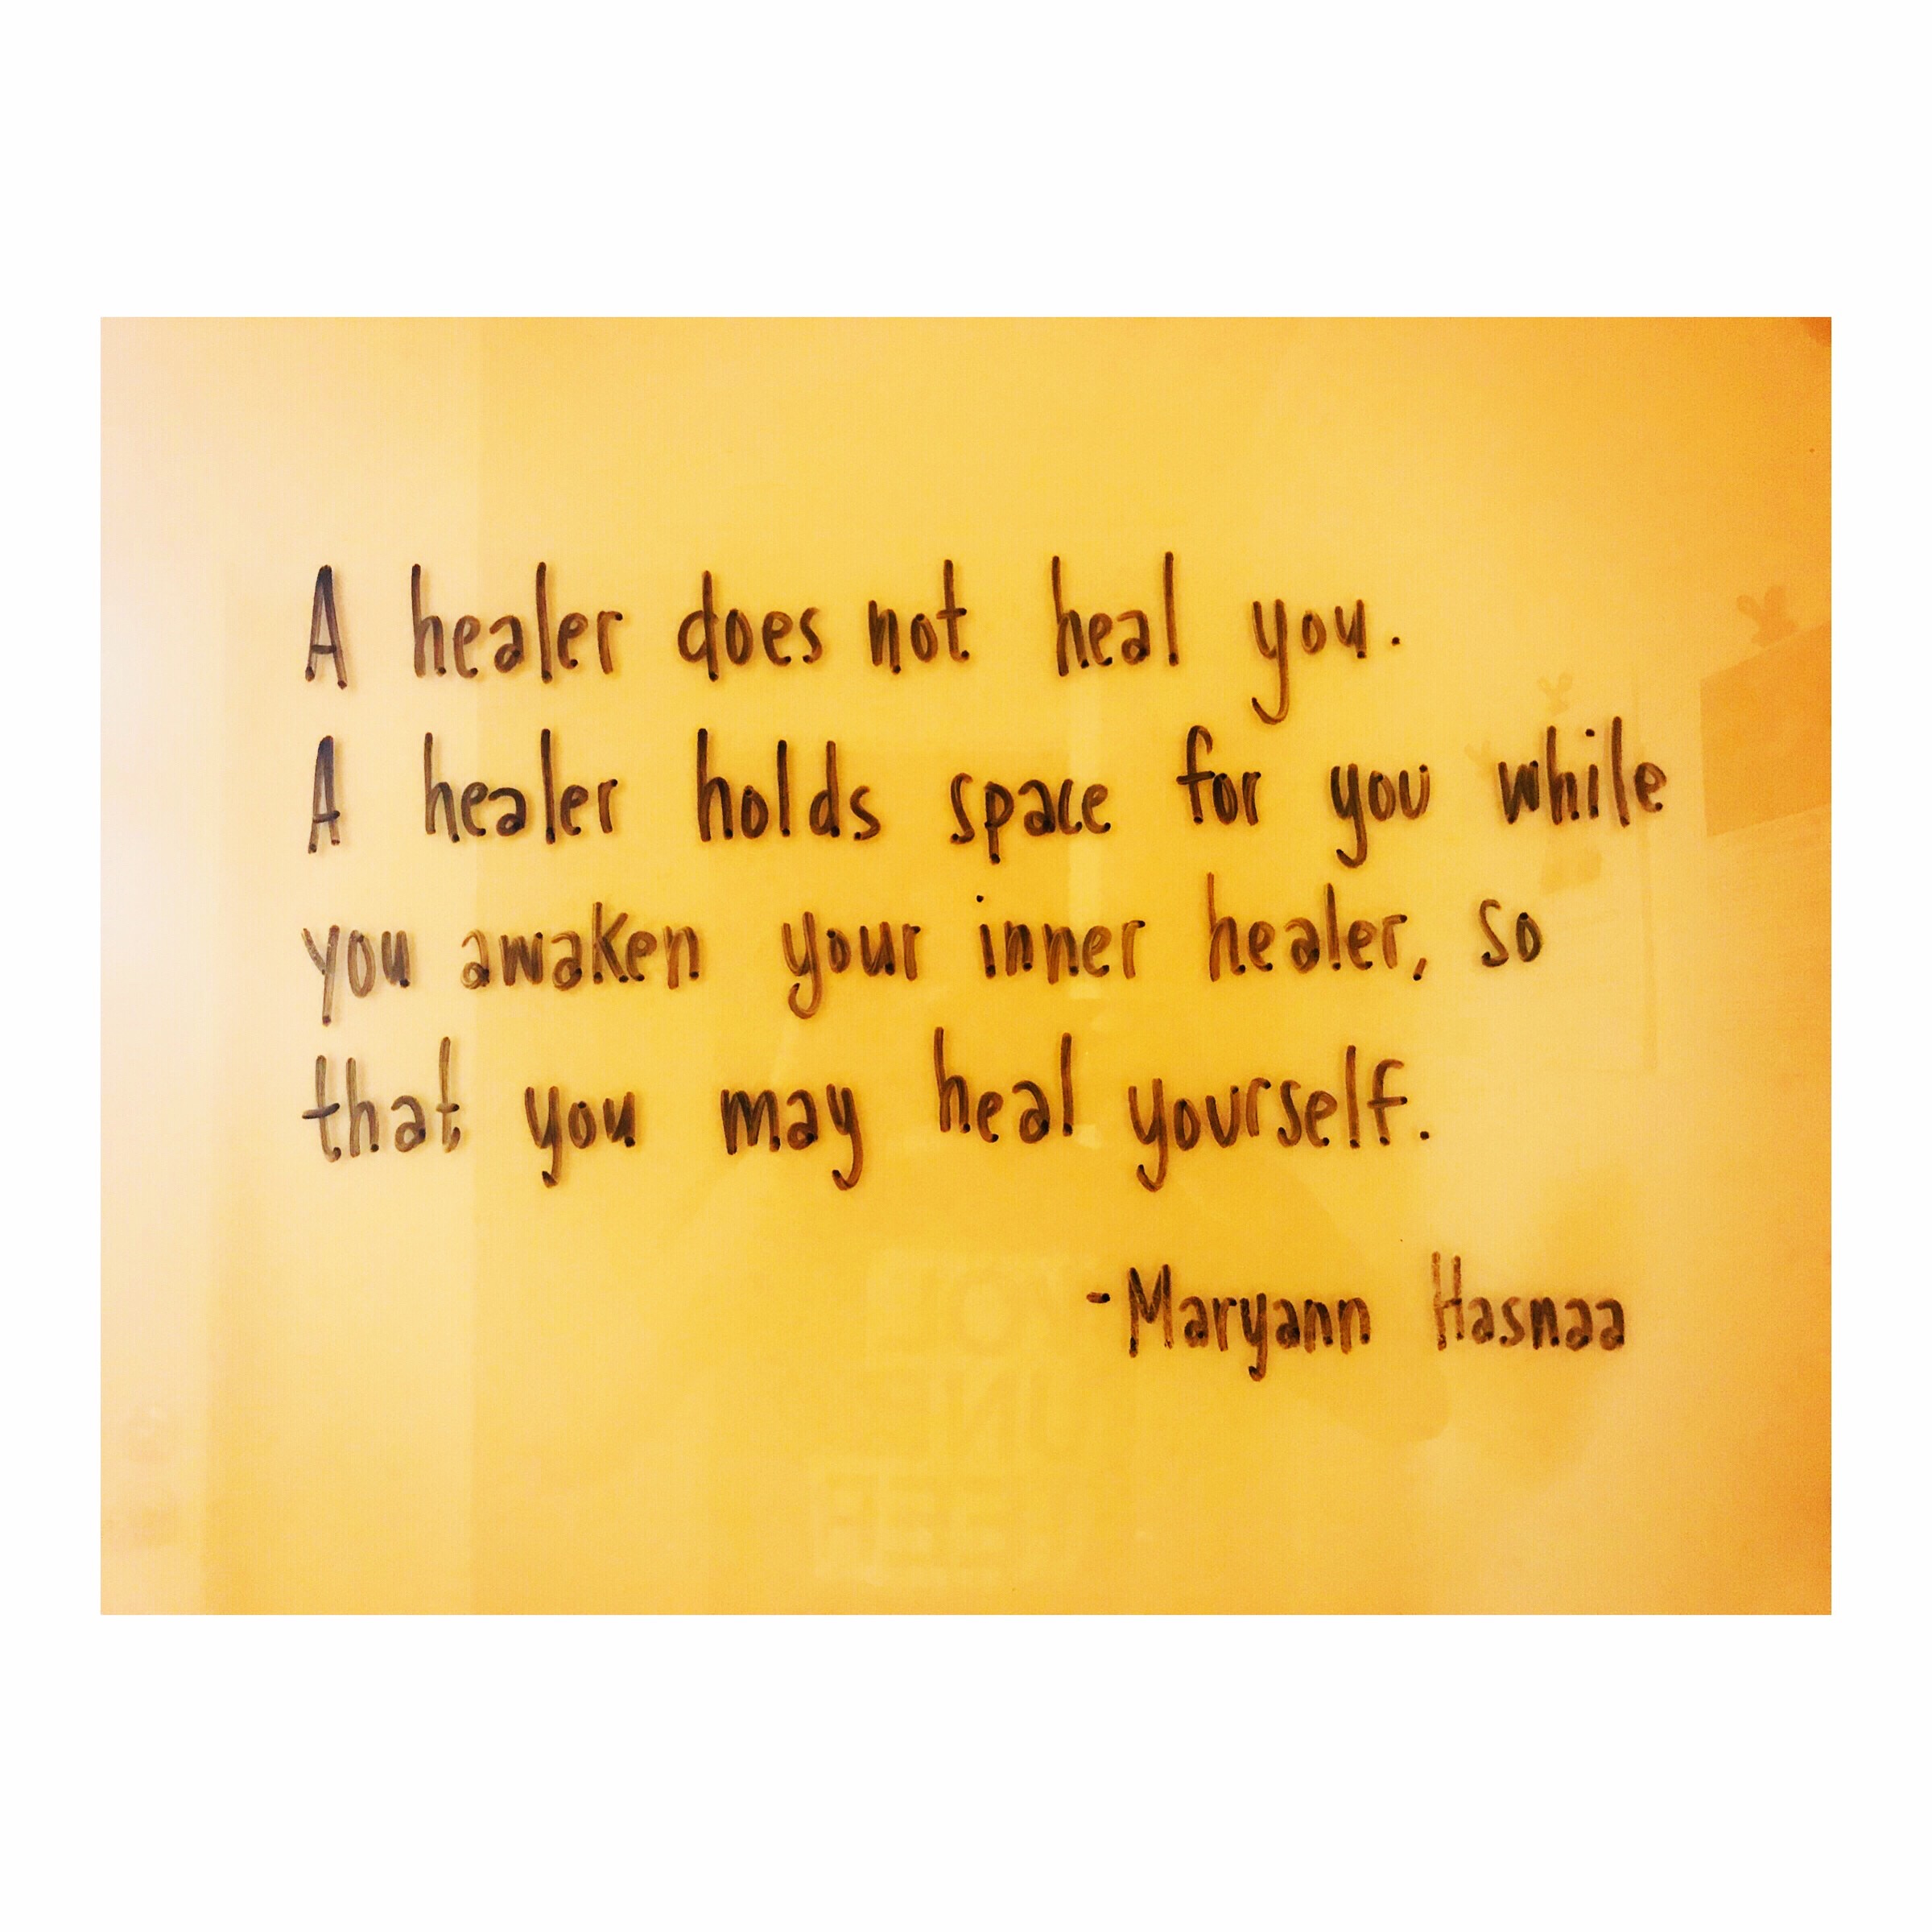 A healer does not heal you.
A healer holds space for you while
you awaken your inner healer, so
that you may heal yourself.
-Maryann Hasnaa